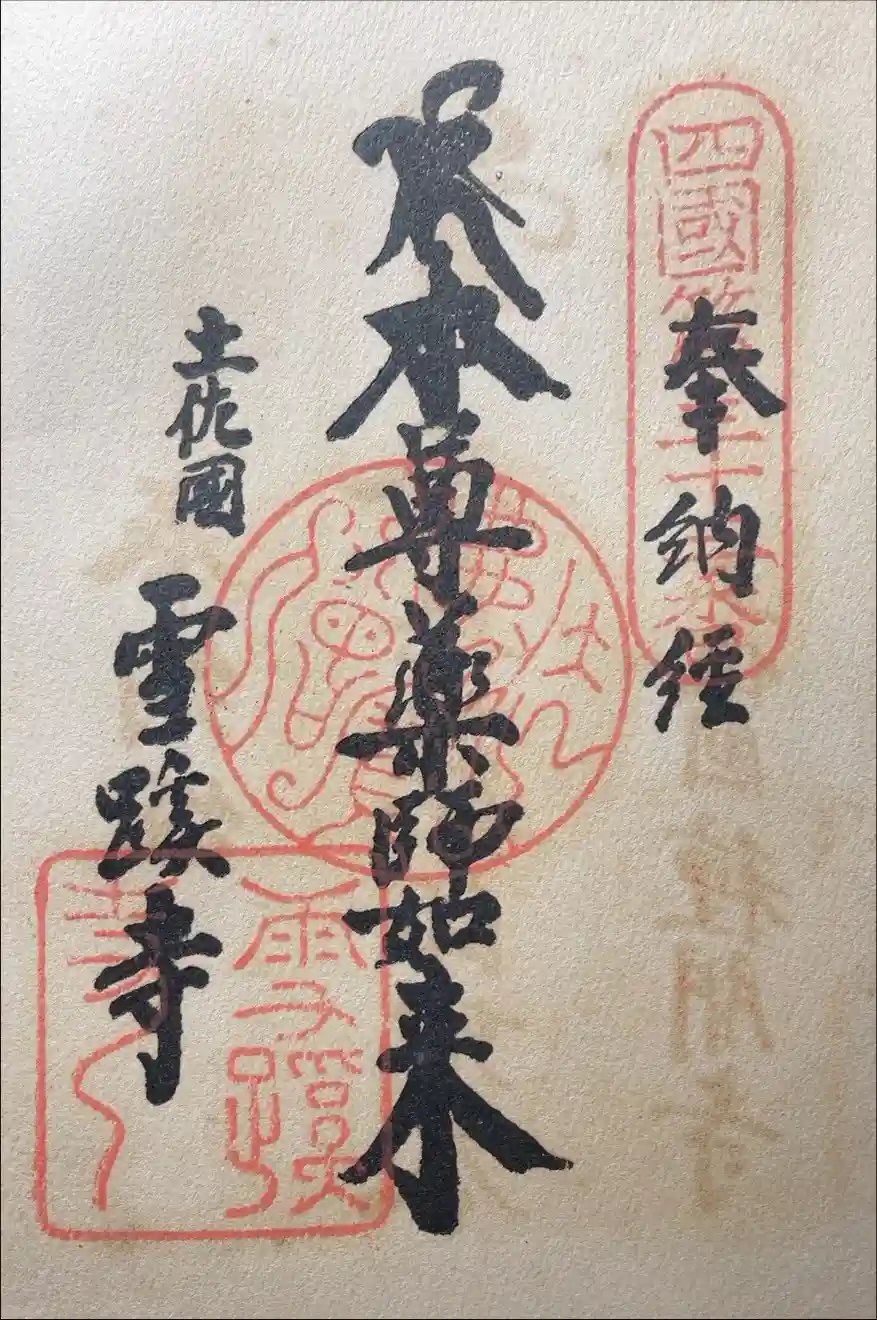 四國第三十三番
奉納経
本尊薬師如来
土佐國 雪蹊寺
雪蹊寺